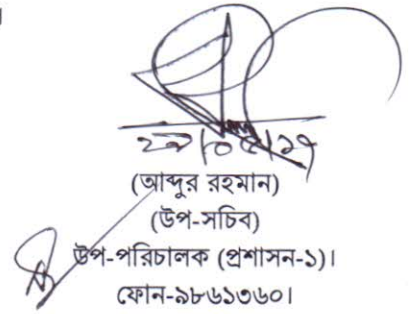 (আব্দুর রহমান)
(উপ-সচিব)
উপ-পরিচালক (প্রশাসন-১)।
ফোন-৯৮৬১৩৬০।